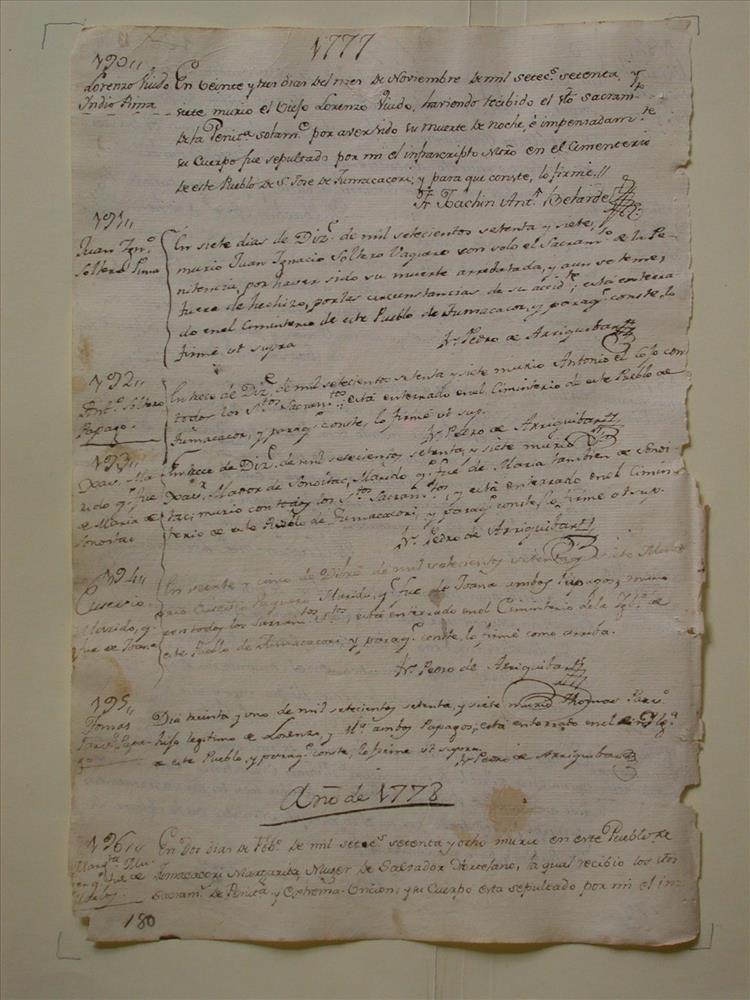 1777
190,,
Lorenzo Viudo
Indio Pima
En veinte y tres dias del mes de Noviembre de mil setecs. setenta, y
siete murio el viejo Lorenzo Viudo, haviendo recibido el Sto. Sacramto.
de la Penica. solamte. por aver sido su muerte de noche, è impensadamte.
su Cuerpo fue sepultado por mi el infrascripto Mnro. en el Cimenterio
de este Pueblo de S. Jose de Tumacacori; y para que conste, lo firmè.//
Fr. Joachin Antº. Belarde
191,,
Juan Ignº.
Soltero Pima
En siete dias de Dize. de mil setecientos setenta y siete,
murio Juan Ignacio Soltero Vaquero con solo el Sacramto. de la Pe-
nitencia, por haver sido su muerte arrebatada, y aun se teme,
fuere de hechizo, por las circunstancias de su accidte., està enterra-
do en el Ciminterio de este Pueblo de Tumacacor, y paraqe. conste, lo
firmè ut supra
Fr. Pedro de Arriquibar
192,,
Antº. Soltero
Papago.
En trece de Dize. de mil setecientos setenta y siete murio Antonio el Cojo con
todos los Stos. Sacramtos., està enterrado en el Ciminterio de este Pueblo de
Tumacacor, y paraqe. conste, lo firmè ut sup.
Fr. Pedro de Arriquibar
193,,
Xavr. Ma-
rido qe. fue
de Maria de
Sonoitac
En trece de Dize. de mil setecientos setenta, y siete murio
Xavr. Mador de Sonoitac, Marido qe. fue de Maria tambien de Sonoi-
tac; murio con todos los Stos. Sacramtos., y està enterrado en el Cimin-
terio de este Pueblo de Tumacacori, y paraqe. conste lo firmè ut sup.
Fr. Pedro de Arriquibar
194,,
Eusevio
Marido, q.
fue de Joana
En veinte y cinco de Dibre. de mil setecientos setenta y siete
Eusevio Vaquero Marido, qe. fue de Joana ambos Papagos, murio
con todos los Sacramtos. Stos., està enterrado en el Ciminterio de la Iglª. de
este Pueblo de Tumacacori, y paraqe. conste, lo firmè como arriba.
Fr. Pedro de Arriquibar
195,,
Tomas
Dia treinta y uno de mil setecientos setenta, y siete murio Thomas
hijo legitimo de Lorenzo, y ambos Papagos, està enterrado en el Iglª.
de este Pueblo, y paraqe. conste, lo firmè ut supra
Fr. Pedro de Arriquibar
Año de 1778
196,,
En dos dias de Febº. de mil setecs. setenta y ocho murio en este Pueblo de
Tumacacori Margarita, Muger de Salvador, la qual recibio los Stos.
Sacramts. de Penicª. y Extrema-Uncion; y su Cuerpo esta sepultado por mi el in
180